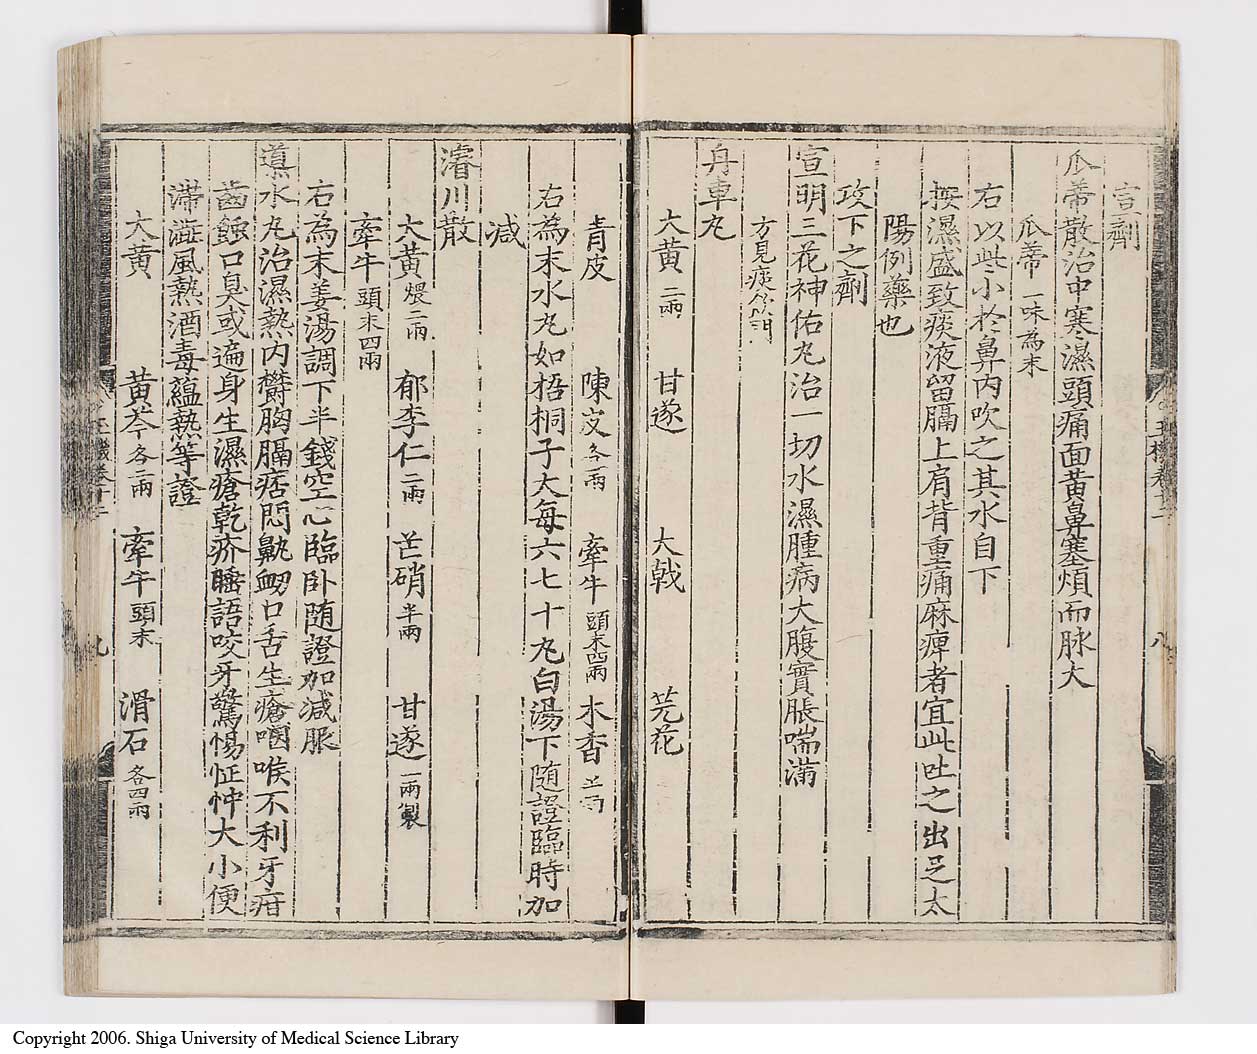 宣劑
瓜蒂散治中寒濕頭痛面黄鼻塞煩而脉大
瓜蒂一味為末
右以些小於鼻内吹之其水自下
按濕盛致痰液留膈上肩背重痛麻痺者宜此吐之出足太
陽例藥也
攻下之劑
宣明三花神佑丸治一切水濕腫病大腹實脹喘滿
方見痰飲門
舟車丸
大黄二兩 甘遂 大戟 芫花
青皮 陳皮各一兩 牽牛頭末四兩 木香五錢
右為末水丸如梧桐子大每六七十丸白湯下隨證臨時加
減
濬川散
大黄煨二兩 郁李仁一兩 芒硝半兩 甘遂一兩製
牽牛頭末四兩
右為末姜湯調下半錢空心臨卧随證加减服
導水丸治濕熱内欝胸膈痞悶鼽衂口舌生瘡咽喉不利牙疳
齒蝕口臭或遍身生濕瘡乾疥睡語咬牙驚惕怔忡大小便
滯澁風熱酒毒蘊熱等證
大黄 黄芩各二兩 牽牛頭末 滑石各四兩
玉機卷十二
八
玉機卷十二
九
Copyright 2006. Shiga University of Medical Science Library